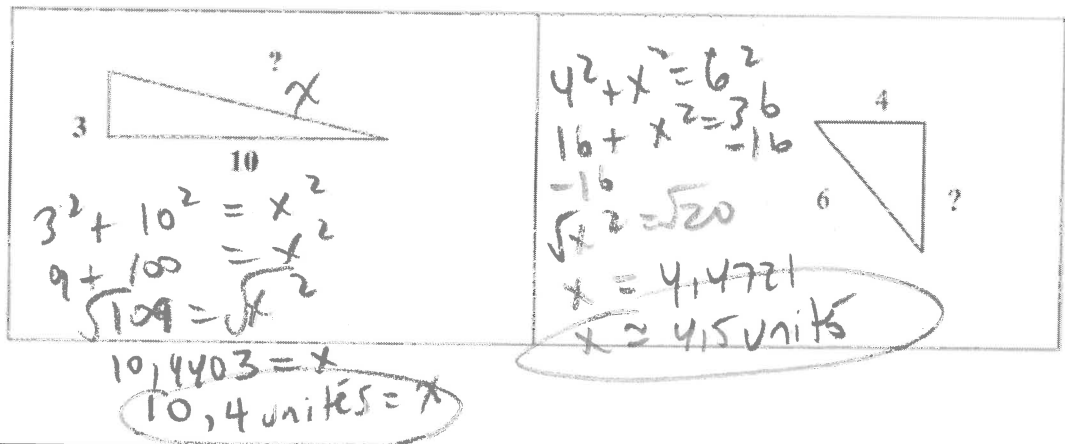 ?
x
3
10
3² + 10² = x²
9 + 100 = x²
√109 = √x²
10,4403 = x
10,4 unités = x
4² + x² = 6²
16 + x² = 36
-16 -16
√x² = √20
x = 4,4721
x ≈ 4,5 unités
4
6
?